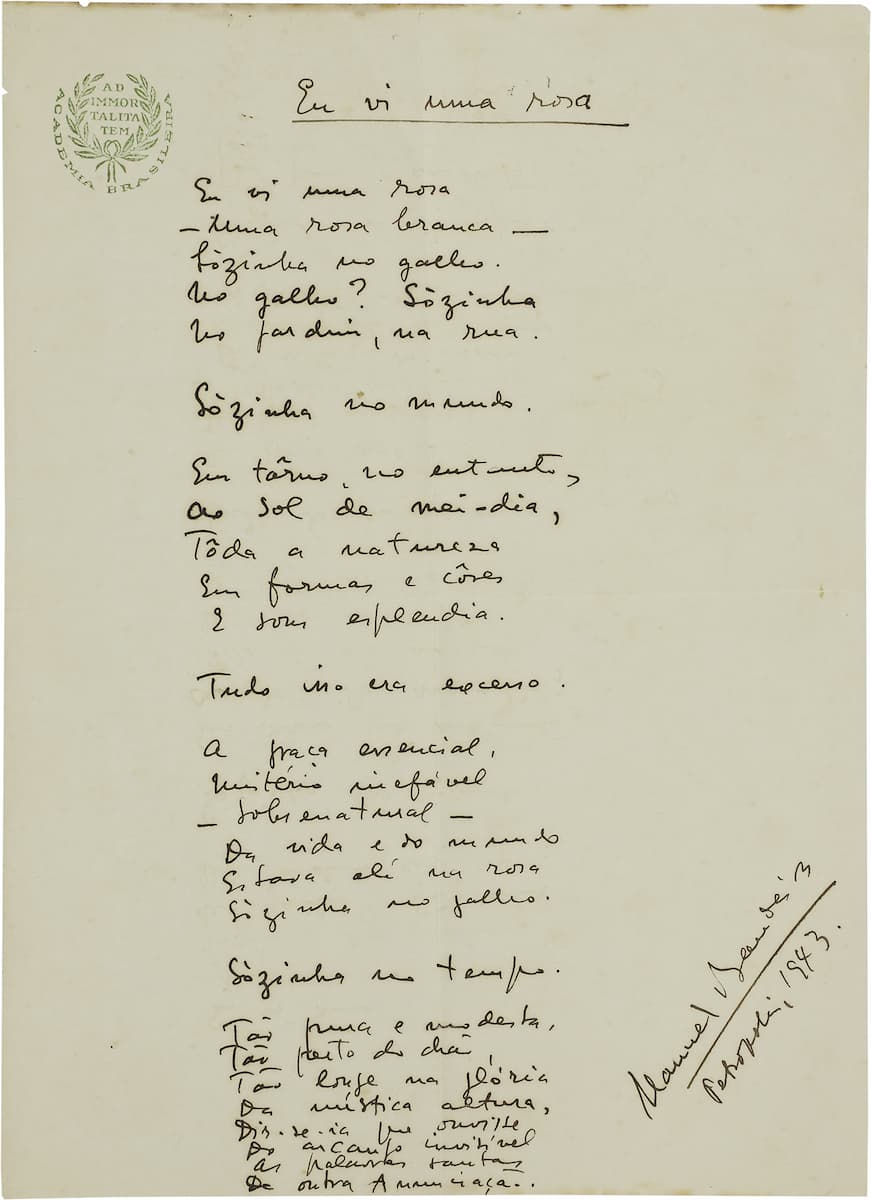 AD
IMMOR
TALITA
TEM
ACADEMIA BRASILEIRA
Eu vi uma rosa
Eu vi uma rosa
— Uma rosa branca —
Sòzinha no galho.
No galho? Sòzinha
No jardim, na rua.
Sòzinha no mundo.
Em tôrno, no entanto,
Ao sol de mei-dia,
Tôda a natureza
Em formas e côres
E sons esplendia.
Tudo isso era excesso.
A graça essencial,
Mistério inefável
— Sobrenatural —
Da vida e do mundo
Estava ali na rosa
Sòzinha no galho.
Sòzinha no tempo.
Tão pura e modesta,
Tão perto do chão,
Tão longe na glória
Da mística altura,
Dir-se-ia que ouvisse
Do arcanjo invisível
As palavras santas
De outra Anunciação..
Manuel Bandeira
Petropolis, 1943.